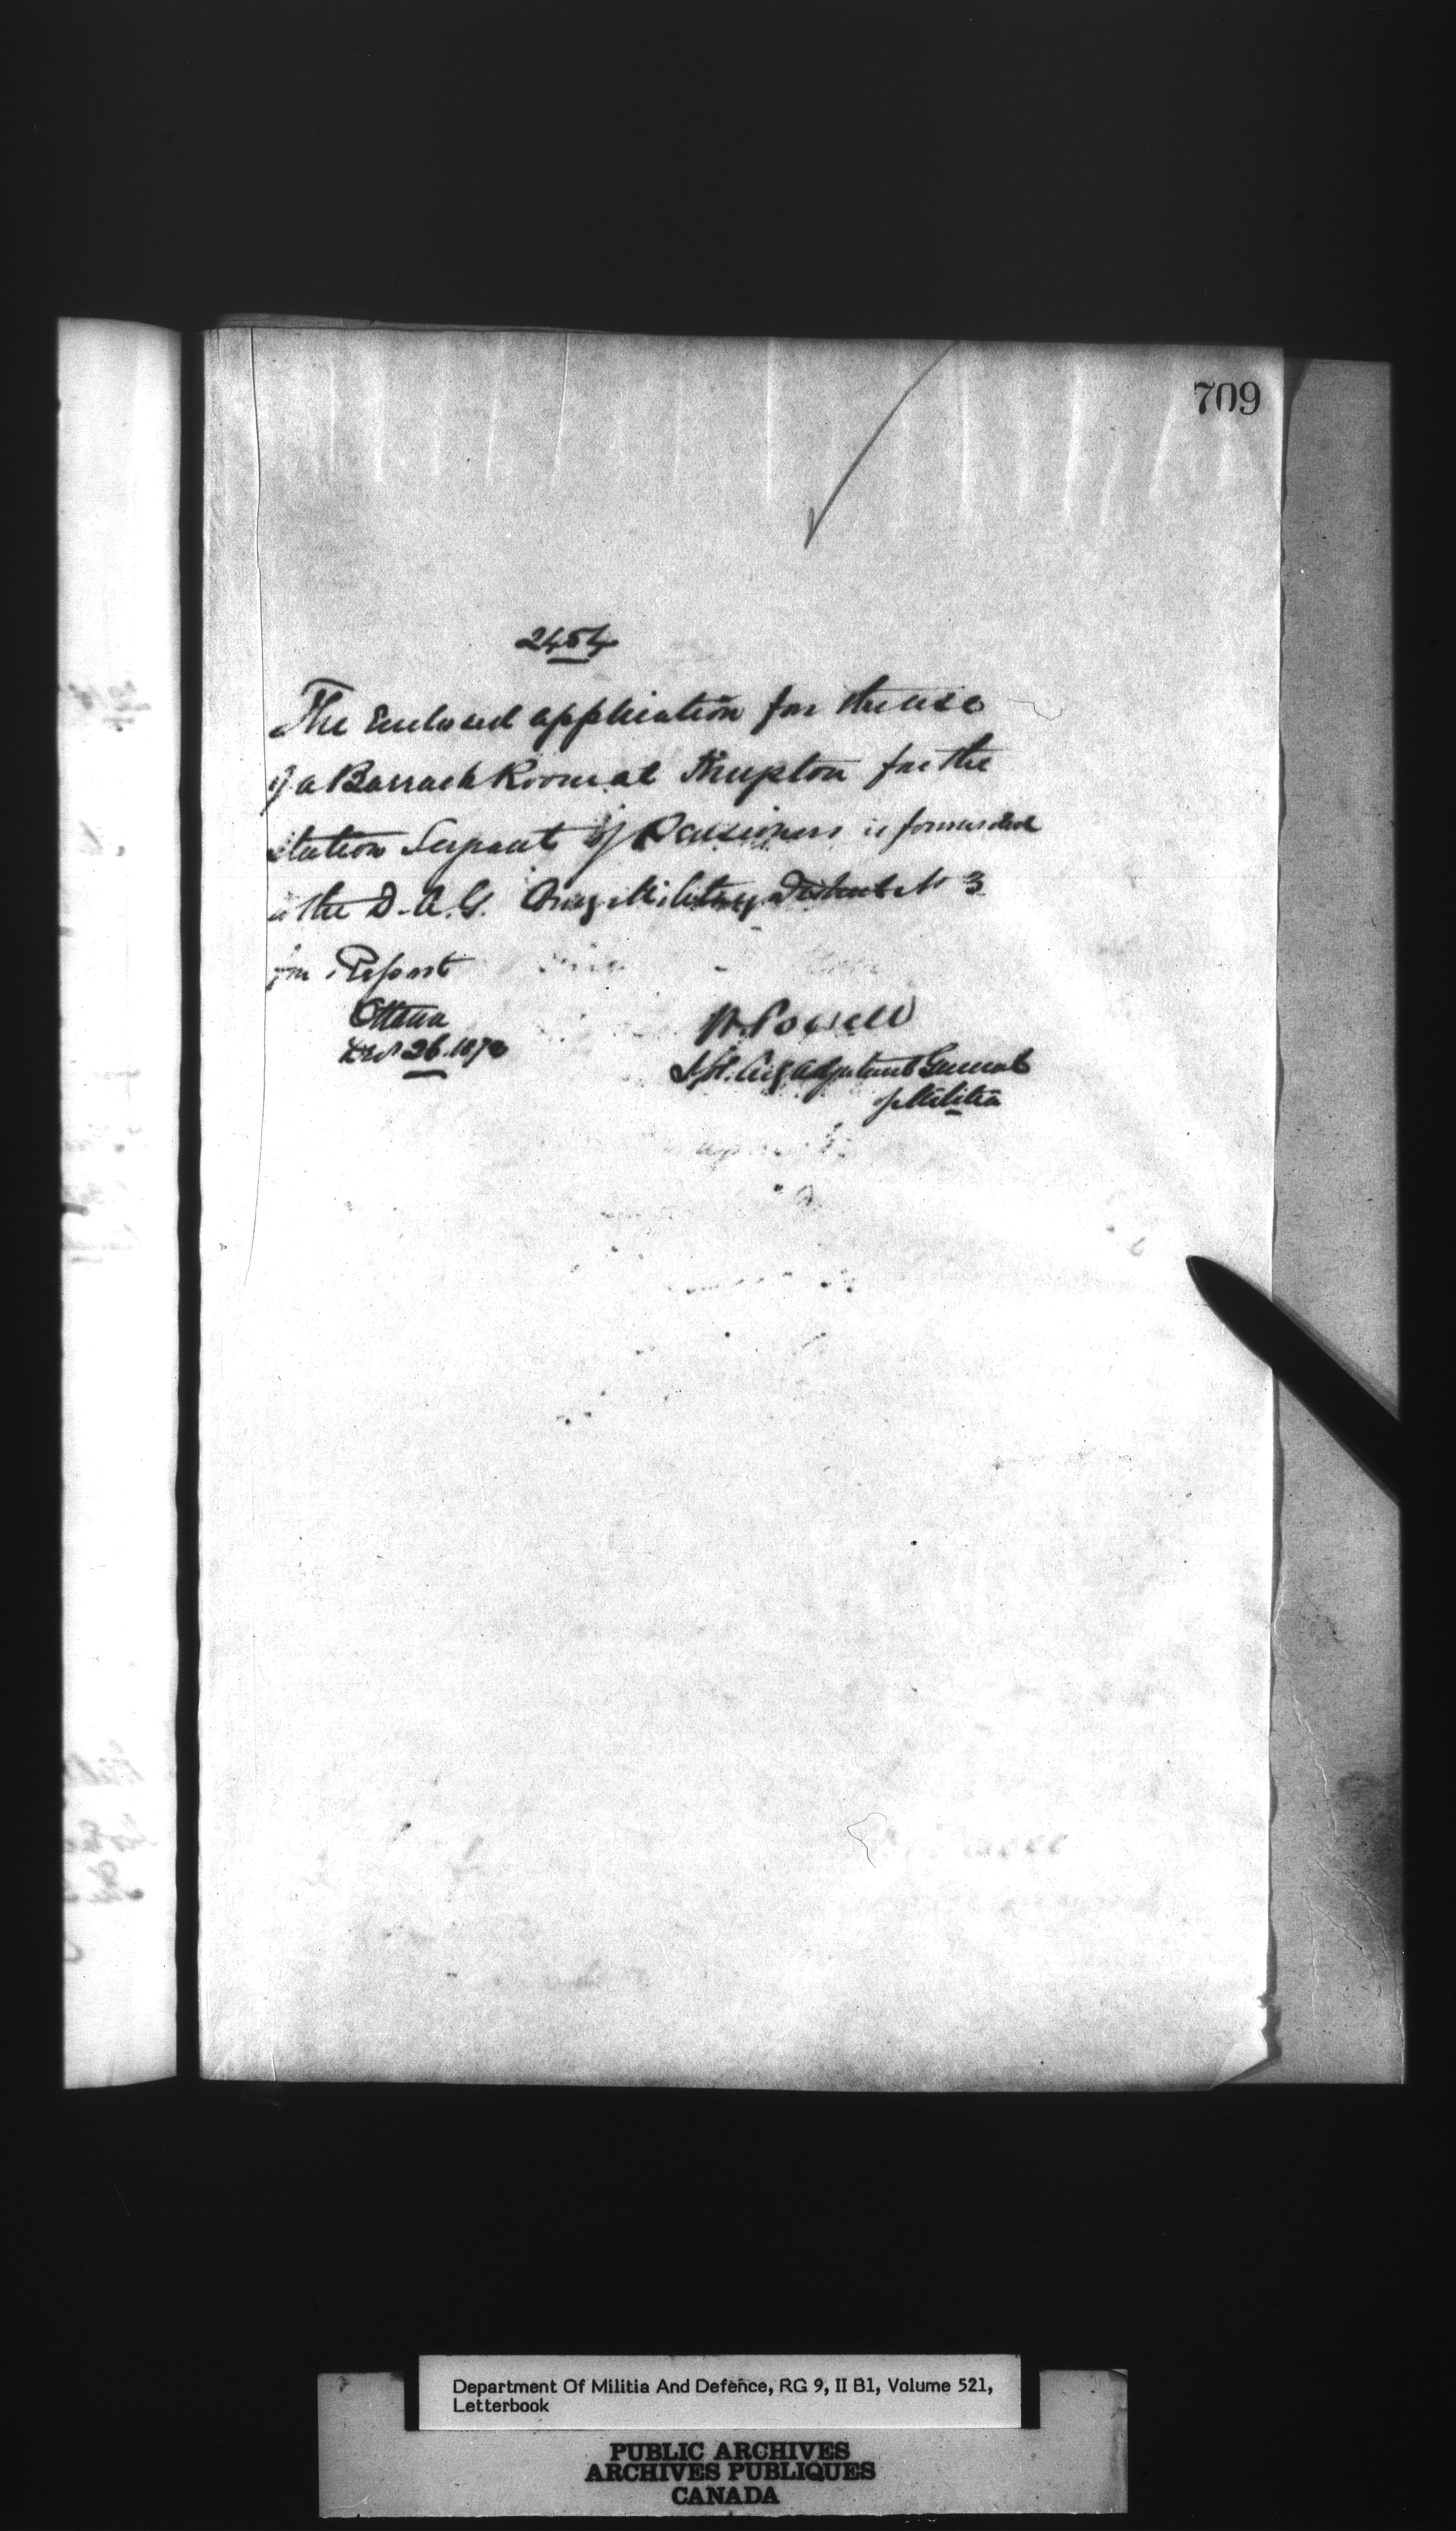 709
2454
The Enclosed application for the use
of a Barrack Room at Kingston for the
Station Sergeant of Pensioners is forwarded
to the D.A.G. Comg Military District No 3
for Report
Ottawa
Decr 26. 1873
W. Powell
Lt Col. Actg Adjutant General
of Militia
Department Of Militia And Defence, RG 9, II B1, Volume 521,
Letterbook
PUBLIC ARCHIVES
ARCHIVES PUBLIQUES
CANADA